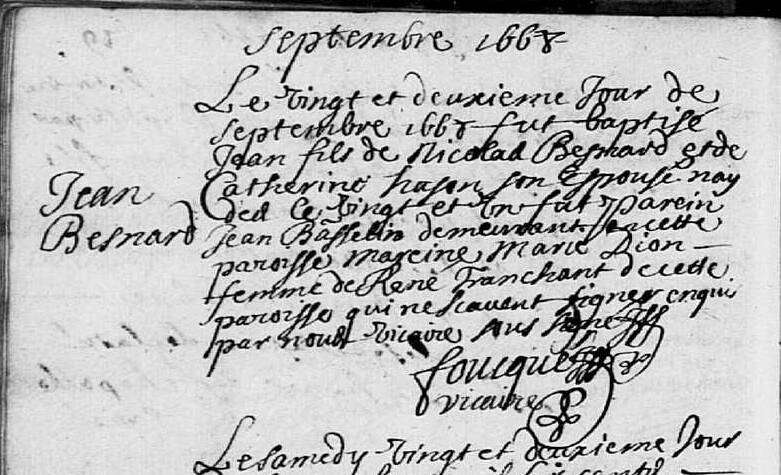 Septembre 1668
Le vingt et deuxieme Jour de
septembre 1668 fut baptisé
Jean fils de Nicolas Besnard et de
Catherine hason son Espouse nay
des le vingt et un fut parein
Jean Basselin demeurant en cette
paroisse mareine Marie Dion
femme de René Tranchant de cette
paroisse qui ne scavent signer enquis
par nous vicaire sous signé
foucque
vicaire
Jean
Besnard
Le samedy vingt et deuxieme Jour